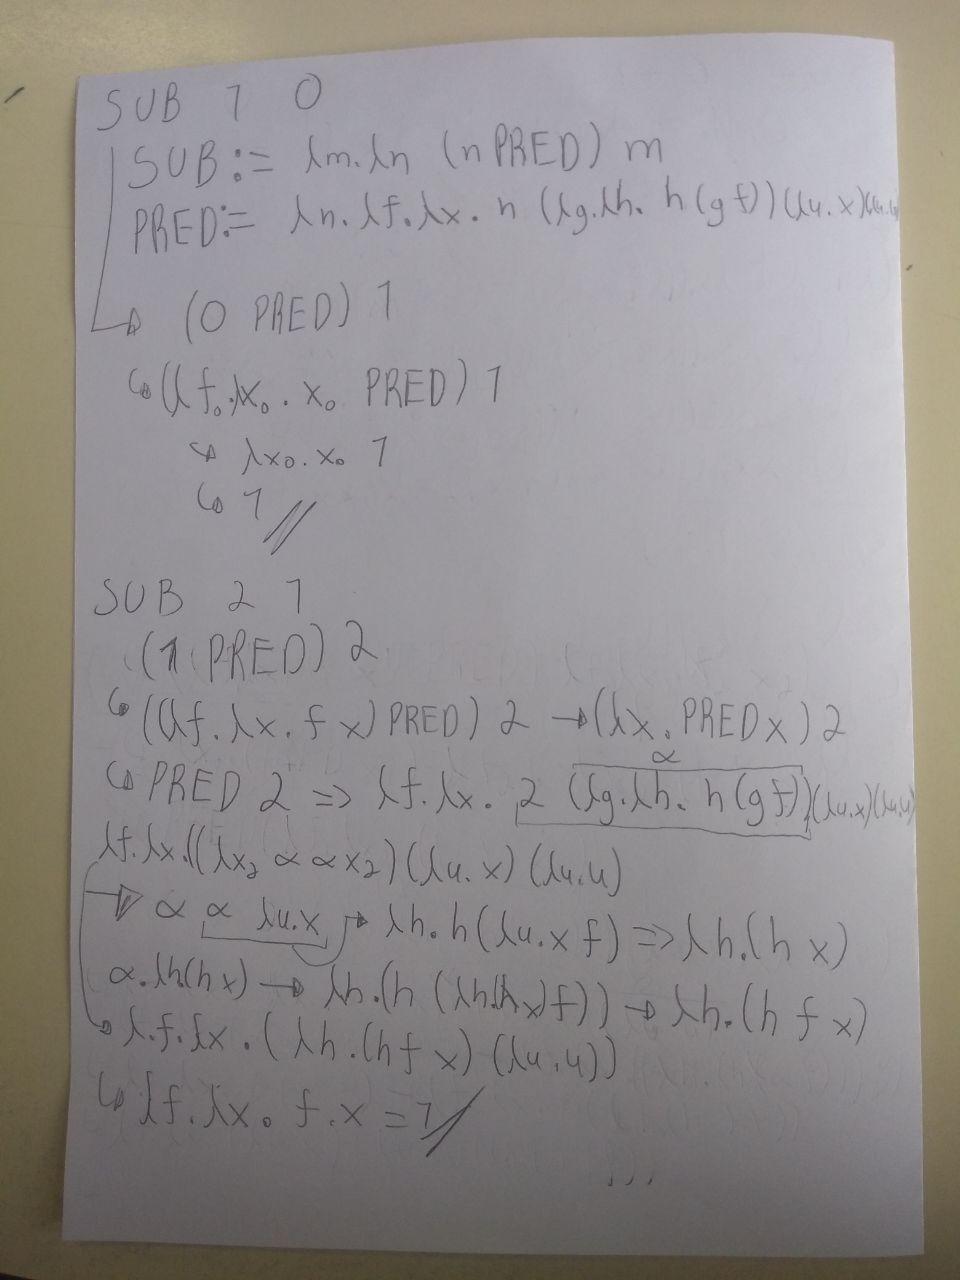 SUB 1 0
SUB := λm.λn (n PRED) m
PRED:= λn.λf.λx. n (λg.λh. h (g f)) (λu.x)(λu.u)
(0 PRED) 1
↳ (λf₀.λx₀. x₀ PRED) 1
↳ λx₀.x₀ 1
↳ 1 //
SUB 2 1
(1 PRED) 2
↳ ((λf.λx. f x) PRED) 2 → (λx. PRED x) 2
α
↳ PRED 2 => λf.λx. 2 (λg.λh. h (g f)) (λu.x)(λu.u)
λf.λx.((λx₂ α α x₂) (λu.x) (λu.u)
→ α α λu.x → λh. h (λu.x f) => λh.(h x)
α.λh(h x) → λh.(h (λh(h x) f)) → λh.(h f x)
↳ λ.f.λx.(λh.(h f x) (λu.u))
↳ λf.λx. f.x = 1 //
...